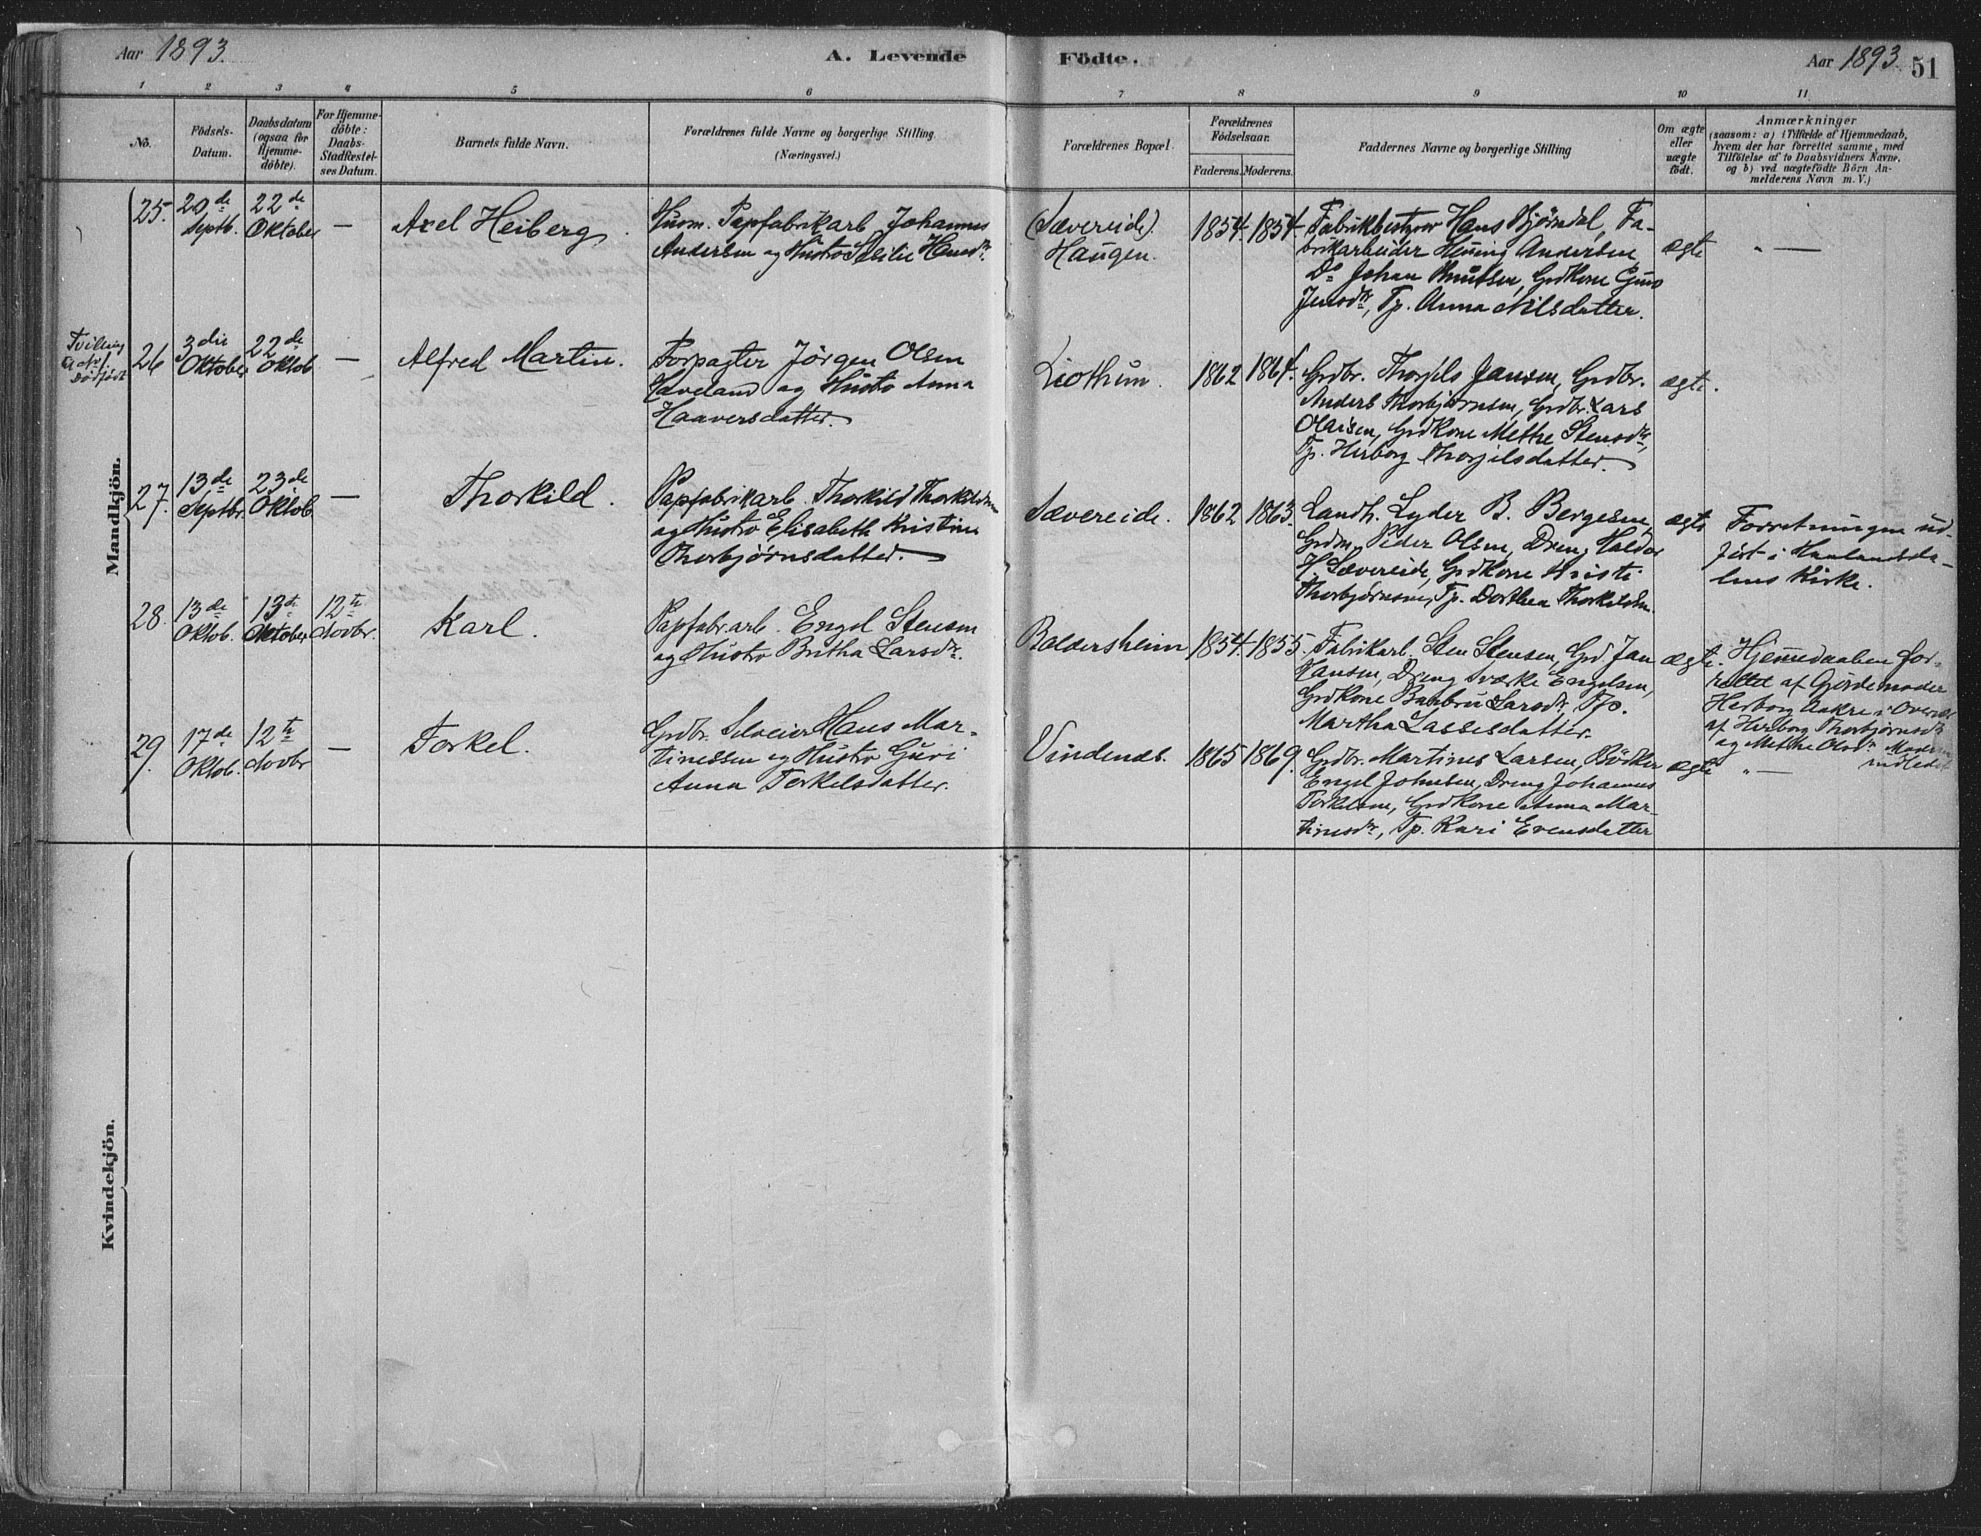 Aar 1893.
A. Levende Födte.
Aar 1893
51
1 2 3 4 5 6 7 8 9 10 11
No.
Födsels-
Datum.
Daabsdatum
(ogsaa for
Hjemme-
döbte).
For Hjemme-
döbte:
Daabs-
Stadfæstel-
ses Datum.
Barnets fulde Navn.
Forældrenes fulde Navne og borgerlige Stilling
(Næringsvei.)
Forældrenes Bopæl.
Forældrenes
Födselsaar.
Faderens. Moderens.
Faddernes Navne og borgerlige Stilling
Om ægte
eller
uægte
födt.
Anmærkninger
(saasom: a) i Tilfælde af Hjemmedaab,
hvem der har forrettet samme, med
Tilföielse af to Daabsvidners Navne,
og b) ved uægtefödte Börn An-
melderens Navn m. V.)
Mandkjön.
25.
20de
Septb.
22de
Oktober
—
Axel Heiberg.
Husm. Papfabrikarb. Johannes
Andersen og Hustro Hansdtr.
(Sævereide)
Haugen.
1854. 1854.
Fabrikbestyrer Hans Bjørndal, Fa-
brikarbeider Henning Andersen,
Do Johan Knutsen, Grdkone
Jensdtr, Tp. Anna Nilsdatter.
ægte
" —
Tvilling
Dødfødt
26
3die
Oktober
22de
Oktob.
—
Alfred Martin.
Forpagter Jörgen Olsen
Haveland og Hustro Anna
Haaversdatter.
Liothun.
1862 1864.
Grdbr. Thorgils Jansen, Grdbr.
Anders Thorbjørnsen, Grdbr. Lars
Olaisen, Grdkone Mette Stensdtr,
Tp. Herborg Thorgilsdatter.
ægte.
27.
13de
Septbr.
23de
Oktob.
—
Thorkild.
Papfabrikarb. Thorkild Thorkildsen
og Hustro Elisabeth Kristine
Thorbjørnsdatter.
Sævereide.
1862 1863.
Landh. Lyder B. Bergesen,
Grdm. Peder Olsen, Dreng Haldor
H Sævereide, Grdkone Kristi
Thorbjørnsen, Tp. Dorthea Thorkildsen.
ægte
Forretningen ud-
ført i Haalandsda-
lens Kirke.
28.
13de
Oktob.
13de
Oktober
12te
Novbr.
Karl.
Papfabr.arb. Engel Stensen
og Hustro Britha Larsdtr.
Baldersheim
1854. 1855.
Fabrikarb. Sten Stensen, Grd Jan
Hansen, Dreng Sværke Engelsen,
Grdkone Barbru Larsdtr, Tp.
Martha Lassesdatter.
ægte.
Hjemmedaaben for-
rettet af Gjordemoder
Herborg Aakre i Overvær
af Herborg Thorbjørnsdtr
og Mette Olsdtr. Moderen
indledet
29.
17de
Oktob.
12te
Novbr
—
Torkel.
Grdbr. Selveier Hans Mar-
tinessen og Hustro Guri
Anna Torkelsdatter.
Vindenes.
1865 1869.
Grdbr. Martines Larsen, Bödker
Engel Johnsen, Dreng Johannes
Torkelsen, Grdkone Anna Mar-
tinesdtr, Tp. Kari Evensdatter
ægte
" —
Kvindekjön.